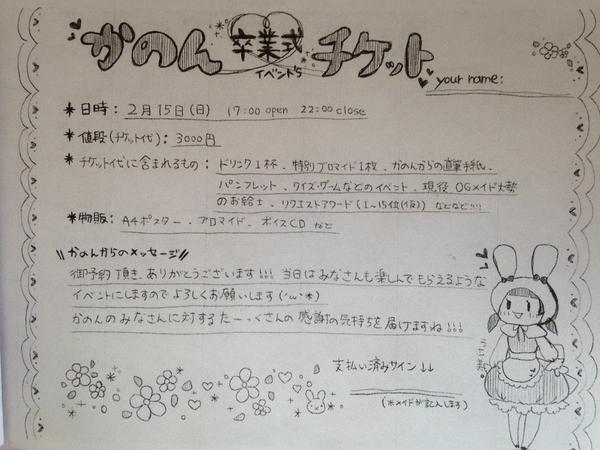 かのん 卒業式 チケット
イベント's
your name:
* 日時: 2月15日(日) 17:00 open 22:00 close
* 値段(チケット代): 3000円
* チケット代に含まれるもの: ドリンク1杯、特別ブロマイド1枚、かのんからの直筆手紙、
パンフレット、クイズ・ゲームなどのイベント、現役OGメイド大勢
のお給士、リクエストアワード(1〜15位(仮))などなど!!!
* 物販: A4ポスター、ブロマイド、ボイスCD など
\\かのんからのメッセージ//
御予約頂き、ありがとうございます!!! 当日はみなさんも楽しんでもらえるような
イベントにしますのでよろしくお願いします(´・ω・*)
かのんのみなさんに対するたーっくさんの感謝の気持ちを届けますね!!!
支払い済みサイン↓↓
(*メイドが記入します)